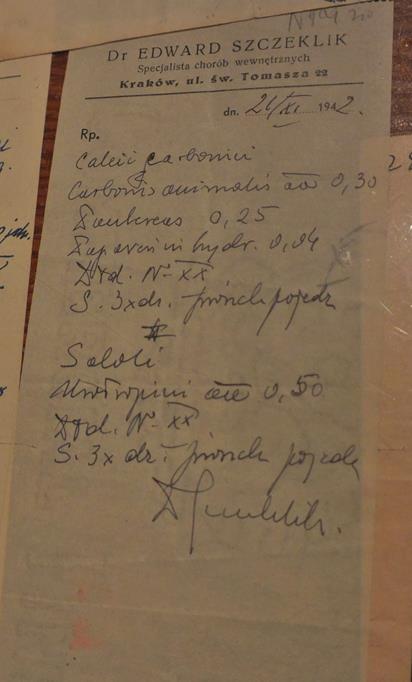 Dr EDWARD SZCZEKLIK
Specjalista chorób wewnętrznych
Kraków, ul. św. Tomasza 22
dn. 21/XI 1942.
Rp.
Calcii carbonici
Carbonis animalis aa 0,30
Pankreas 0,25
Papaverini hydr. 0,04
Dtd. No XX
S. 3x dz. proszek
Saloli
Urotropini aa 0,50
Dtd. No XX
S. 3x dz. proszek